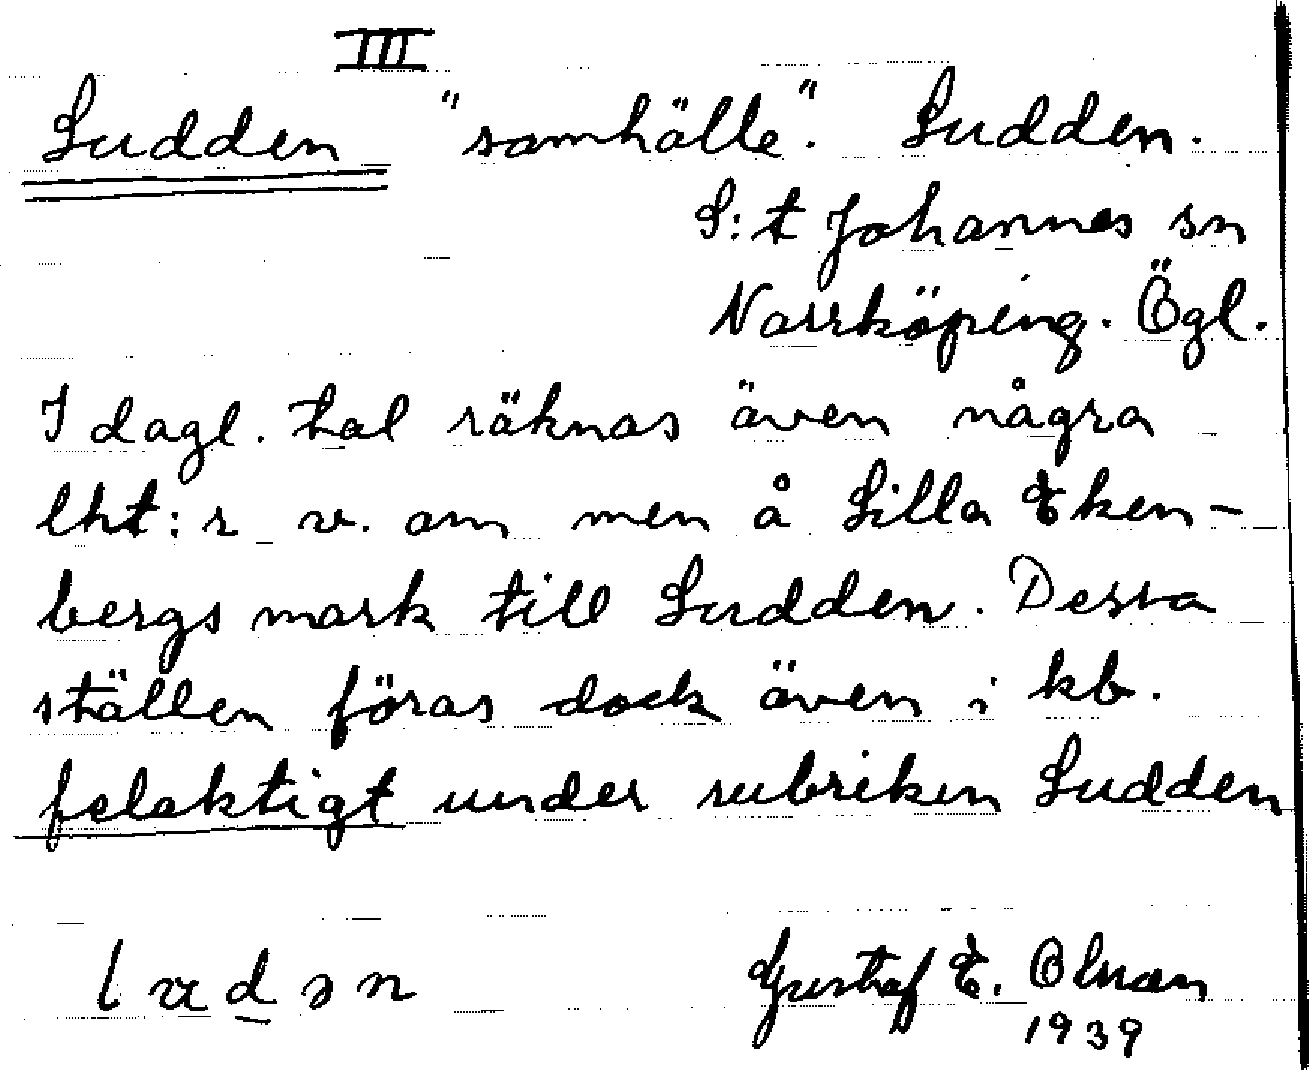 III
Ludden "samhälle". Ludden.
S:t Johannes sn
Norrköping. Ögl.
I dagl. tal räknas även några
lht:r v. om men å Lilla Eken-
bergs mark till Ludden. Dessa
ställen föras dock även i kb.
felaktigt under rubriken Ludden
l u d ə n
Gustaf E. Olsson
1939